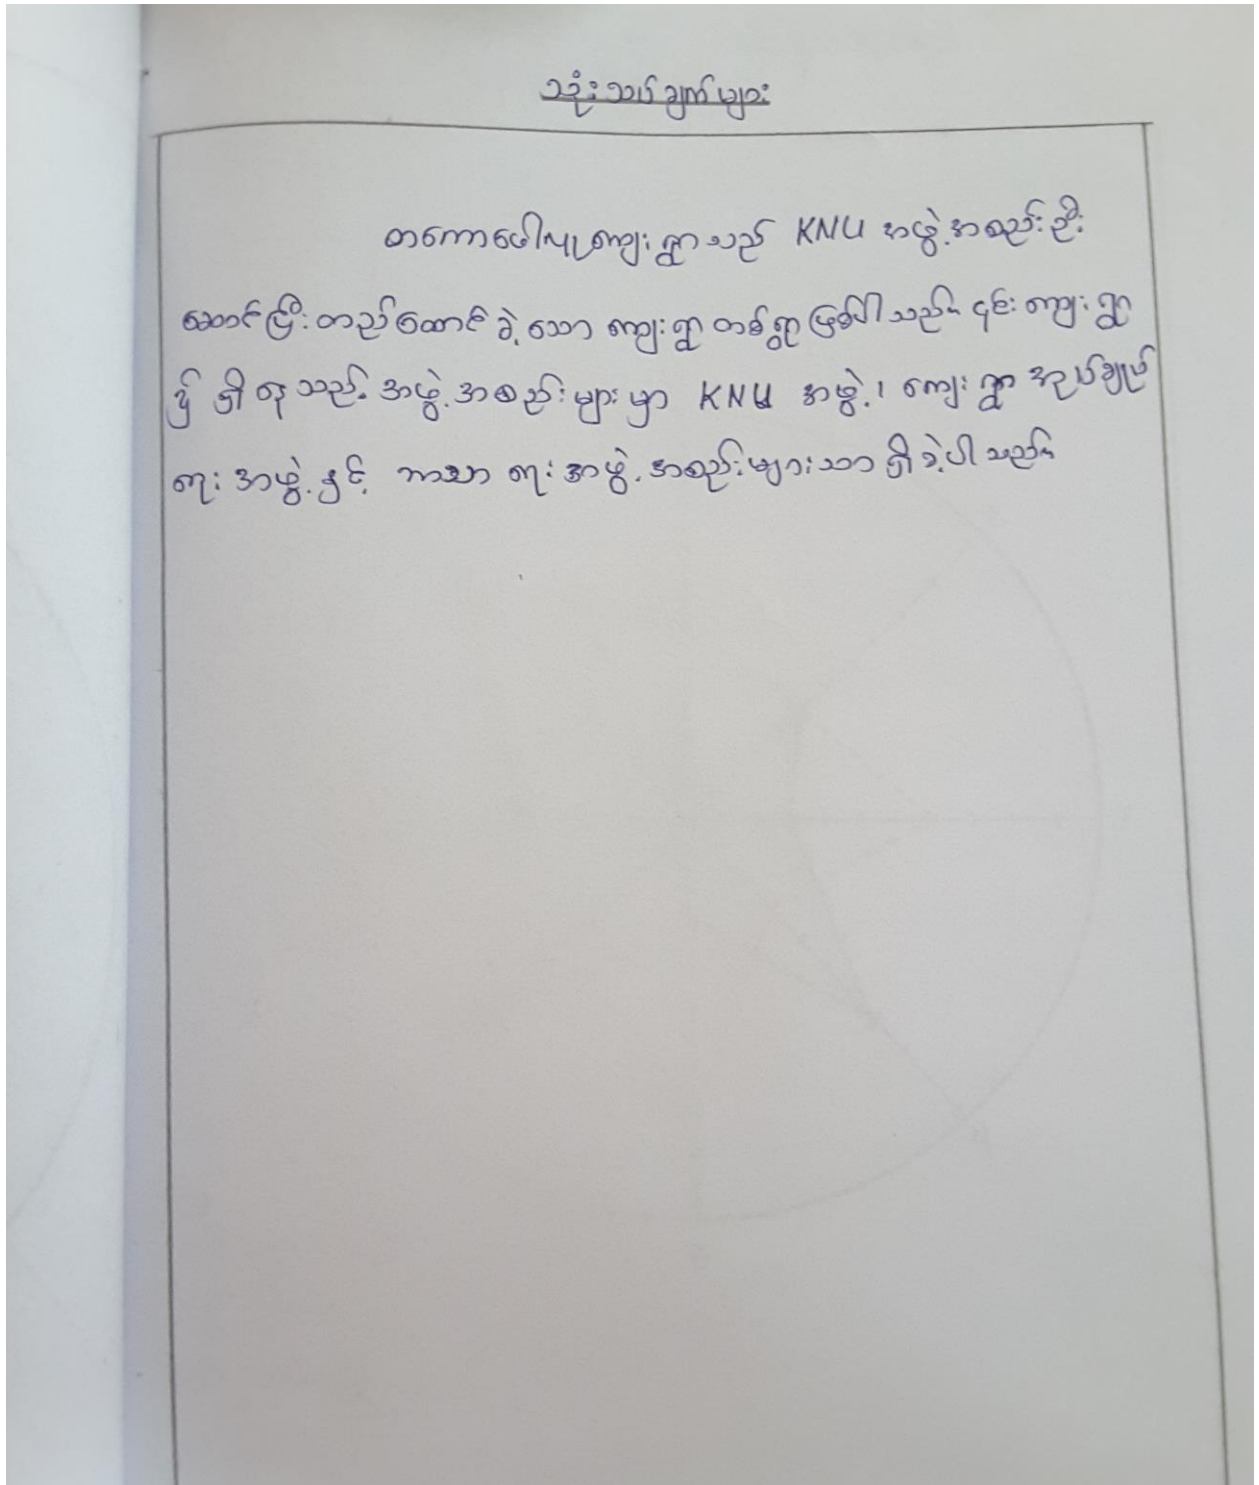 သုံးသပ်ချက်များ
တကောဖေါ်လုကျေးရွာသည် KNU အဖွဲ့အစည်းဦး
ဆောင်ပြီးတည်ထောင်ခဲ့သောကျေးရွာတစ်ရွာဖြစ်ပါသည်။ ၎င်းကျေးရွာ
၌ ရှိနေသည့်အဖွဲ့အစည်းများမှာ KNU အဖွဲ့၊ ကျေးရွာအုပ်ချုပ်
ရေးအဖွဲ့နှင့် ဘာသာရေးအဖွဲ့အစည်းများသာရှိခဲ့ပါသည်။